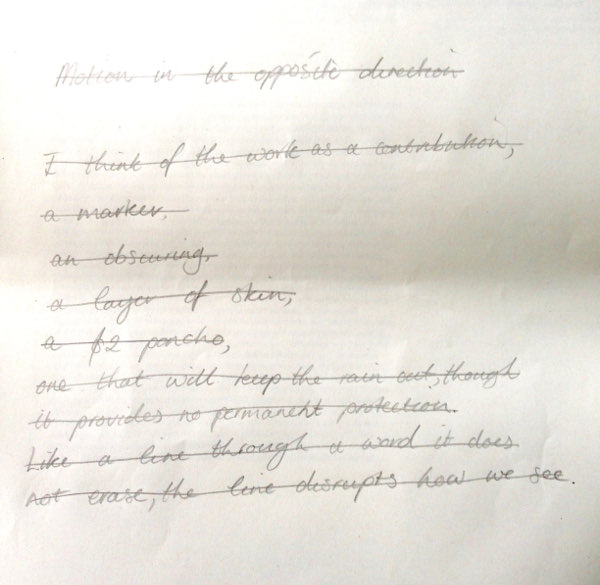 Motion in the opposite direction
I think of the work as a contribution,
a marker,
an obscuring,
a layer of skin,
a $2 poncho,
one that will keep the rain out, though
it provides no permanent protection.
Like a line through a word it does
not erase, the line disrupts how we see.